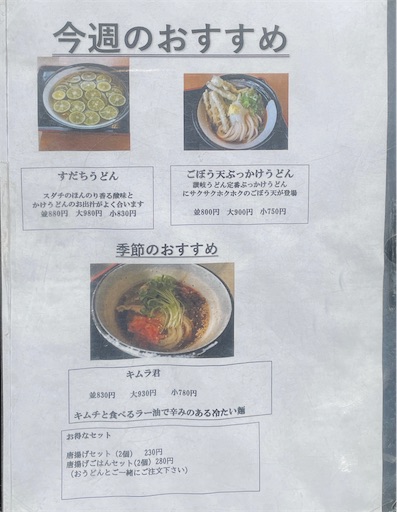 今週のおすすめ
すだちうどん
スダチのほんのり香る酸味と
かけうどんのお出汁がよく合います
並880円 大980円 小830円
ごぼう天ぶっかけうどん
讃岐うどん定番ぶっかけうどん
にサクサクホクホクのごぼう天が登場
並800円 大900円 小750円
季節のおすすめ
キムラ君
並830円 大930円 小780円
キムチと食べるラー油で辛みのある冷たい麺
お得なセット
唐揚げセット (2個) 230円
唐揚げごはんセット(2個) 280円
(おうどんとご一緒にご注文下さい)